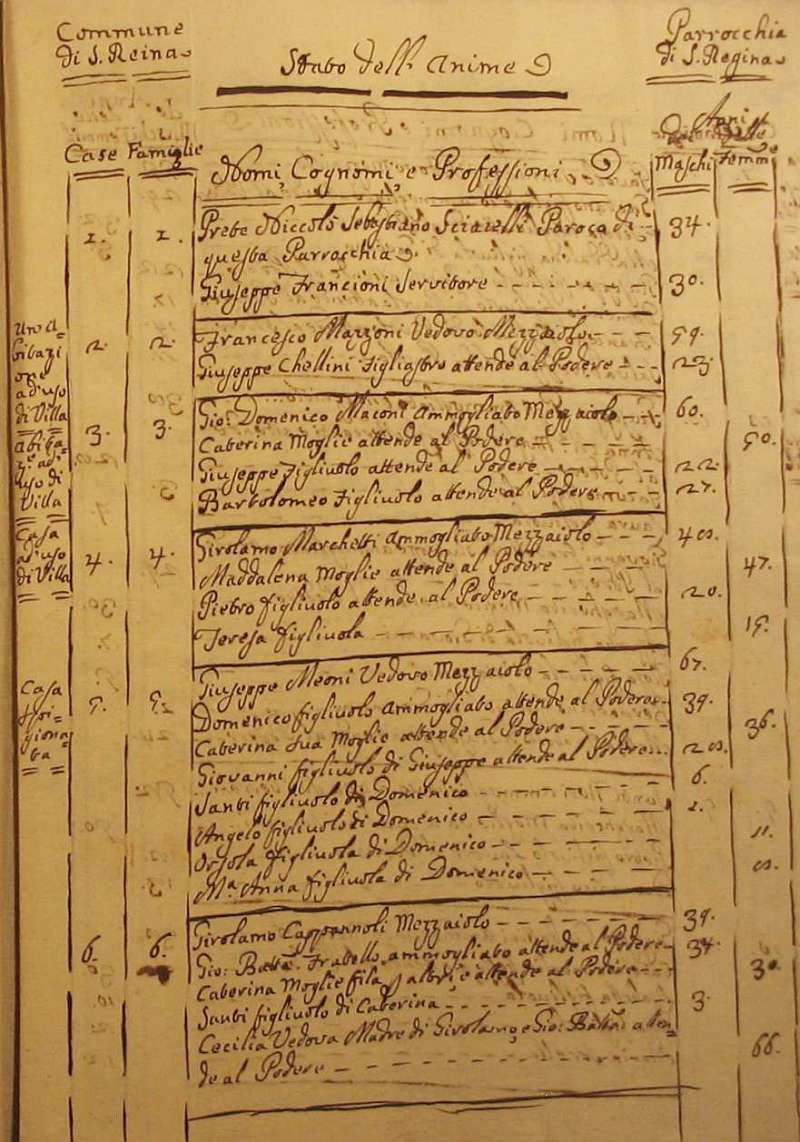 Commune
di S. Reina
Stato dell' Anime
Parrocchia
di S. Regina
Anni
Case Famiglie
Nomi Cognomi e Professioni
Maschi Femm
1. 1. Prete Niccolò Sebastiano Sciarelli Paroco di 34.
questa Parrocchia
Giuseppe Francioni Servitore 30.
Una A=
bitazi
one
ad uso
di Villa
2. 2. Francesco Mazzoni Vedovo Mezzaiolo 59.
Giuseppe Chellini Figliastro attende al Podere 23.
abita=
ad'
uso di
Villa
3. 3. Gio: Domenico Maconi Ammogliato Mezzaiolo 60.
Caterina Moglie attende al Podere 50.
Giuseppe Figliuolo attende al Podere 22.
Bartolomeo Figliuolo attende al Podere 27.
Casa
ad uso
di Villa
4. 4. Girolamo Marchetti Ammogliato Mezzaiolo 48.
Maddalena Moglie attende al Podere 47.
Pietro figliuolo attende al Podere 20.
Teresa figliuola 15.
Casa
Spi=
giona=
ta
5. 5. Giuseppe Meoni Vedovo Mezzaiolo 67.
Domenico figliuolo Ammogliato attende al Podere 39.
Caterina sua Moglie attende al Podere 36.
Giovanni figliuolo di Giuseppe attende al Podere 28.
Santi figliuolo di Domenico 6.
Angelo figliuolo di Domenico 1.
Orsola figliuola di Domenico 11.
Mª Anna figliuola di Domenico 8.
6. 6. Girolamo Cappannoli Mezzaiolo 39.
Gio: Batta Fratello ammogliato attende al Podere 34.
Caterina Moglie fila, e attende al Podere 30.
Santi figliuolo di Caterina 3.
Cecilia Vedova Madre di Girolamo, e Gio: Batta atten
de al Podere 66.